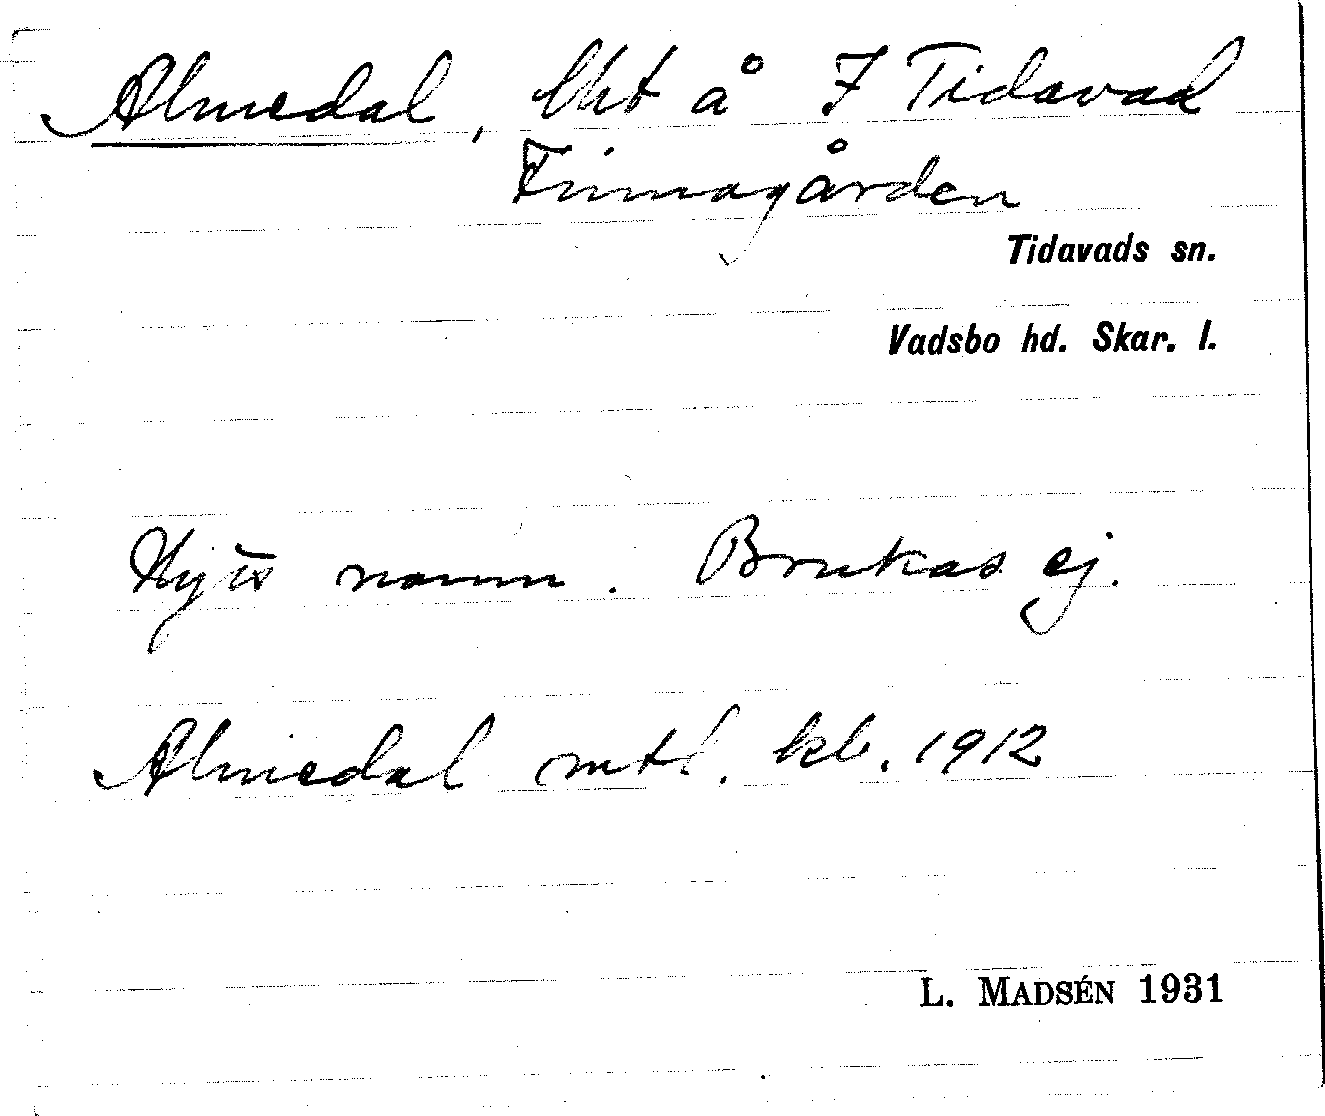 Almedal, lht å 7 Tidavad
Finnagården
Tidavads sn.
Vadsbo hd. Skar. l.
Nytt namn. Brukas ej.
Almedal mtl. kb. 1912
L. MADSÉN 1931